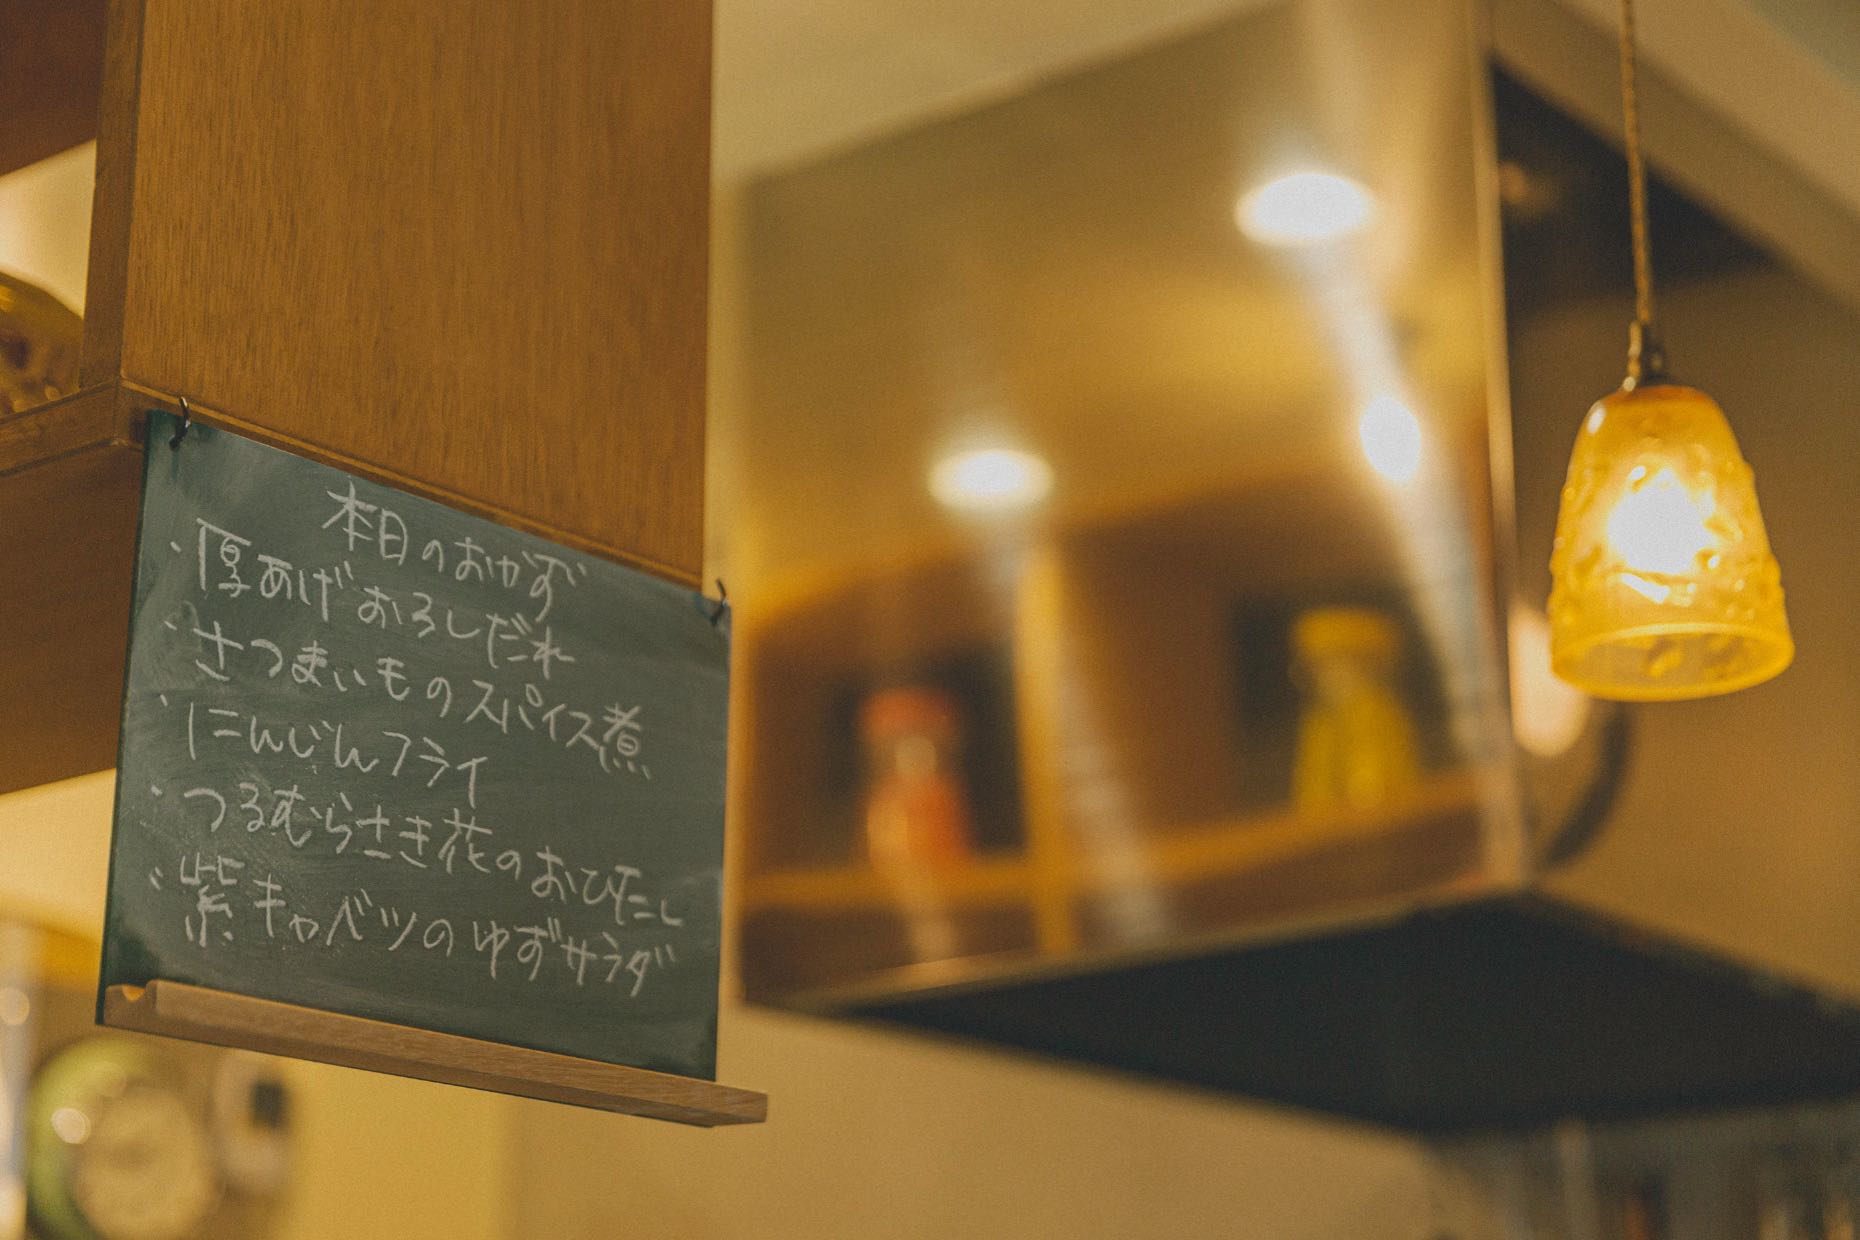 本日のおかず
・厚あげおろしだれ
・さつまいものスパイス煮
・にんじんフライ
・つるむらさき花のおひたし
・紫キャベツのゆずサラダ